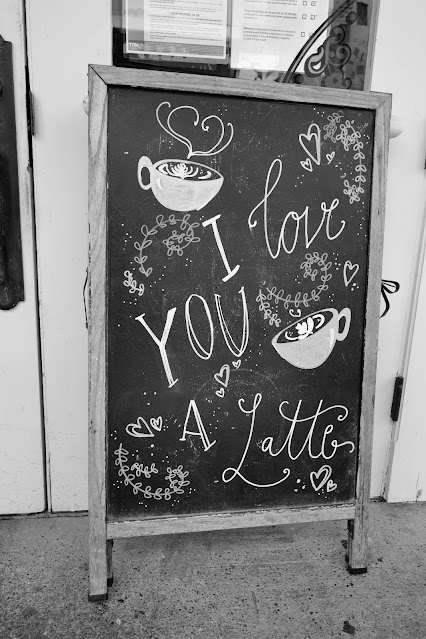 I love
YOU
A Latte